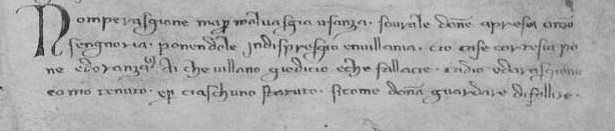 Nomperasgione map malvasgia usanza. sovrale done apresa canno
sengnoria. ponendole indispresgio envillania. cio case cortesia po
ne edoranza. Ai che villano giudicio eche fallacie. credio edarasgione
como tenuto. ep ciaschuno statuto. sicome dona guardare difallire.